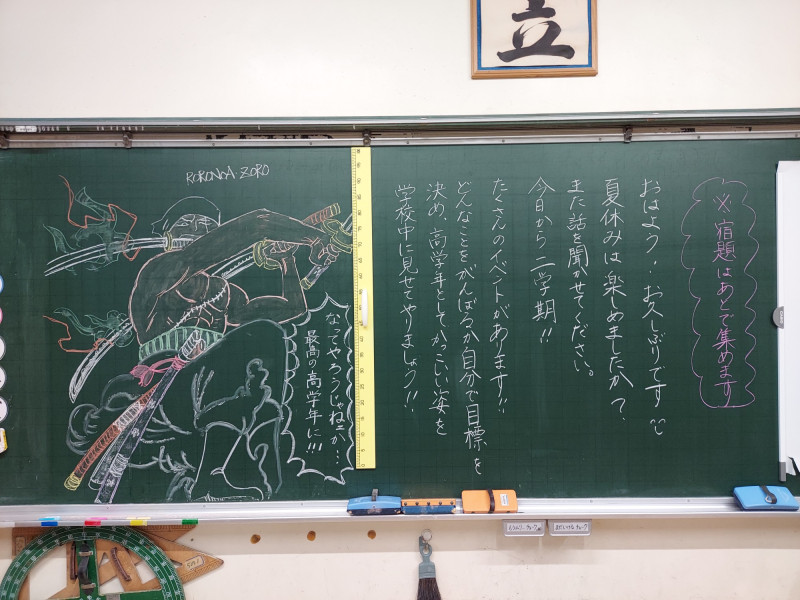 立
RORONOA ZORO
※宿題はあとで集めます
おはよう！お久しぶりです
夏休みは楽めましたか？
また話を聞かせてください。
今日から二学期！！
たくさんのイベントがあります！！
どんなことをがんばるか自分で目標を
決め、高学年としてかっこいい姿を
学校中に見せてやりましょう！！
なってやろうじゃねェか…
最高の高学年に!!!